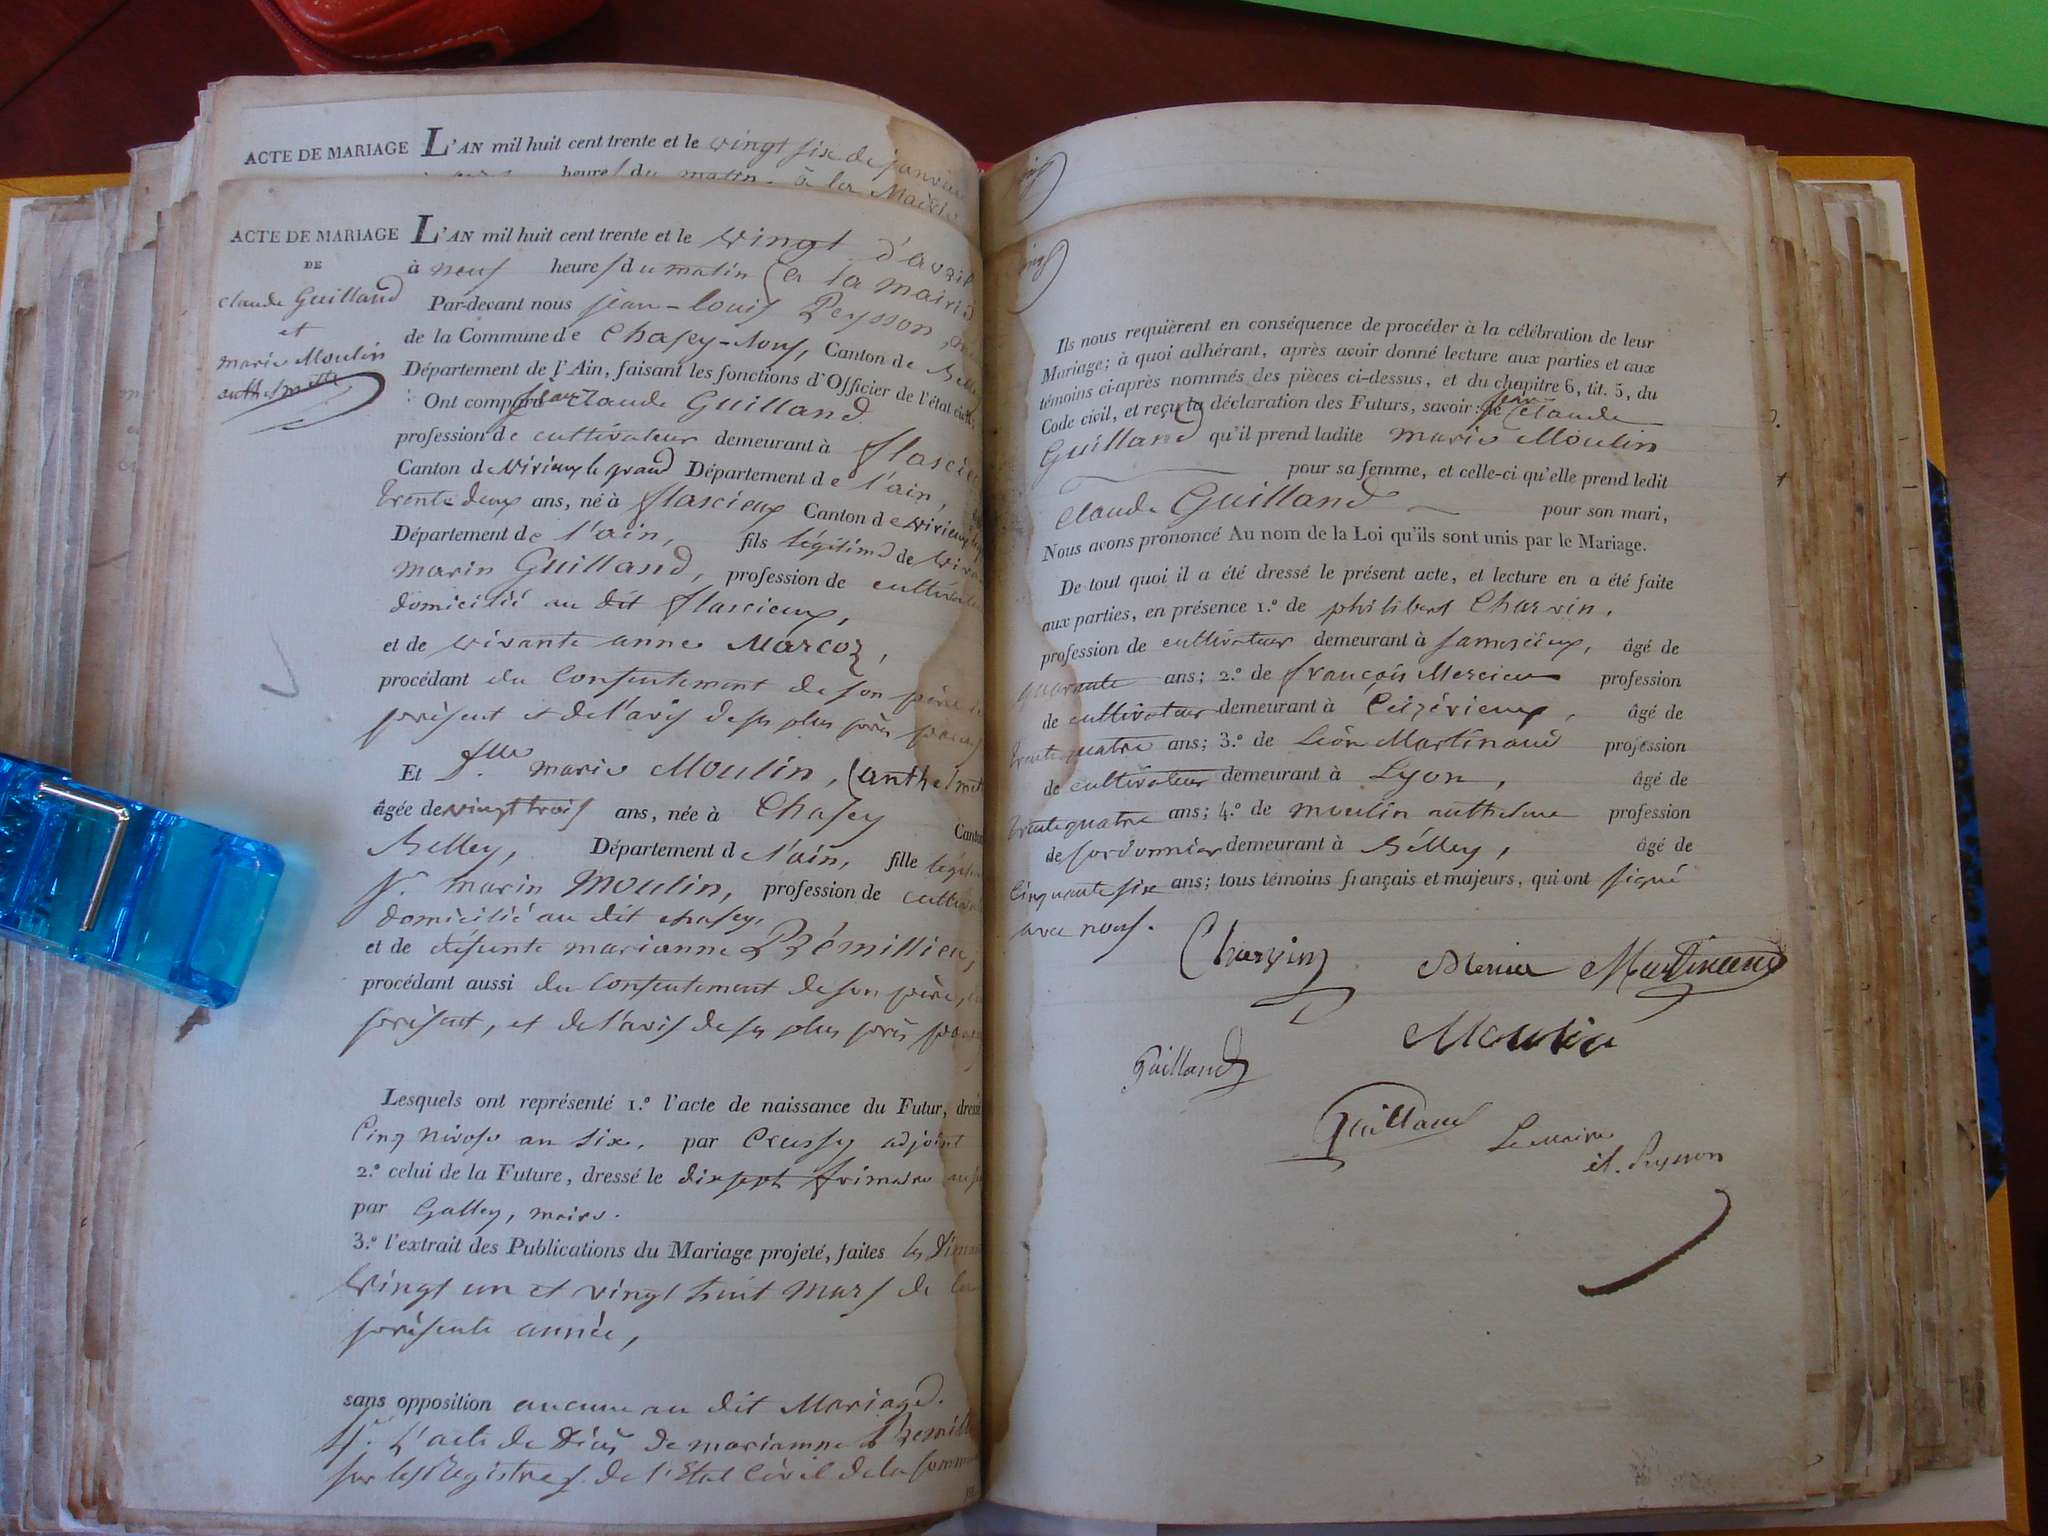 ACTE DE MARIAGE L'AN mil huit cent trente et le vingt six de janvier
heures du matin à la Mairie
ACTE DE MARIAGE
DE
Claude Guilland
et
marie Moulin
anthelmette
L'AN mil huit cent trente et le vingt d'avril
à neuf heures du matin à la mairie
Par-devant nous jean-louis Peysson,
de la Commune de Chasey-bons, Canton de Belley
Département de l'Ain, faisant les fonctions d'Officier de l'état civil,
Ont comparu Claude Guilland
profession de cultivateur demeurant à flaxieux
Canton de virieux le grand Département de l'ain,
trente deux ans, né à flaxieux Canton de virieux le
Département de l'ain, fils légitime de
marin Guilland, profession de cultivateur
domicilié au dit flaxieux,
et de vivante anne Marcoz,
procédant du Consentement de son père
présent et de l'avis de ses plus près
Et Dlle marie Moulin, (anthelmette
âgée de vingt trois ans, née à Chasey Canton
Belley, Département de l'ain, fille légitime
Sr. marin Moulin, profession de cultivateur
domicilié au dit chasey,
et de défunte marianne Prémillieu,
procédant aussi du Consentement de son père,
présent, et de l'avis de ses plus près
Lesquels ont représenté 1.º l'acte de naissance du Futur, dressé
Cinq Nivose an six, par Crussy adjoint
2.º celui de la Future, dressé le dix sept frimaire
par Galley, maire.
3.º l'extrait des Publications du Mariage projeté, faites les
vingt un et vingt huit Mars de la
présente année,
sans opposition aucune au dit Mariage.
L'acte de Décès de marianne Premillieu
sur les Registres de l'Etat Civil de la Commune
Ils nous requièrent en conséquence de procéder à la célébration de leur
Mariage; à quoi adhérant, après avoir donné lecture aux parties et aux
témoins ci-après nommés des pièces ci-dessus, et du chapitre 6, tit. 5, du
Code civil, et reçu la déclaration des Futurs, savoir: le Claude
Guilland qu'il prend ladite marie Moulin
pour sa femme, et celle-ci qu'elle prend ledit
Claude Guilland pour son mari,
Nous avons prononcé Au nom de la Loi qu'ils sont unis par le Mariage.
De tout quoi il a été dressé le présent acte, et lecture en a été faite
aux parties, en présence 1.º de philibert Charvin,
profession de cultivateur demeurant à âgé de
quarante ans; 2.º de françois Mercier profession
de cultivateur demeurant à Ceizérieux, âgé de
trente quatre ans; 3.º de Léon Martinand profession
de cultivateur demeurant à Lyon, âgé de
trente quatre ans; 4.º de moulin anthelme profession
de cordonnier demeurant à Belley, âgé de
Cinquante six ans; tous témoins français et majeurs, qui ont signé
avec nous.
Charvin Mercier Martinand
Moulin
Guilland
Guilland Le Maire
Peysson